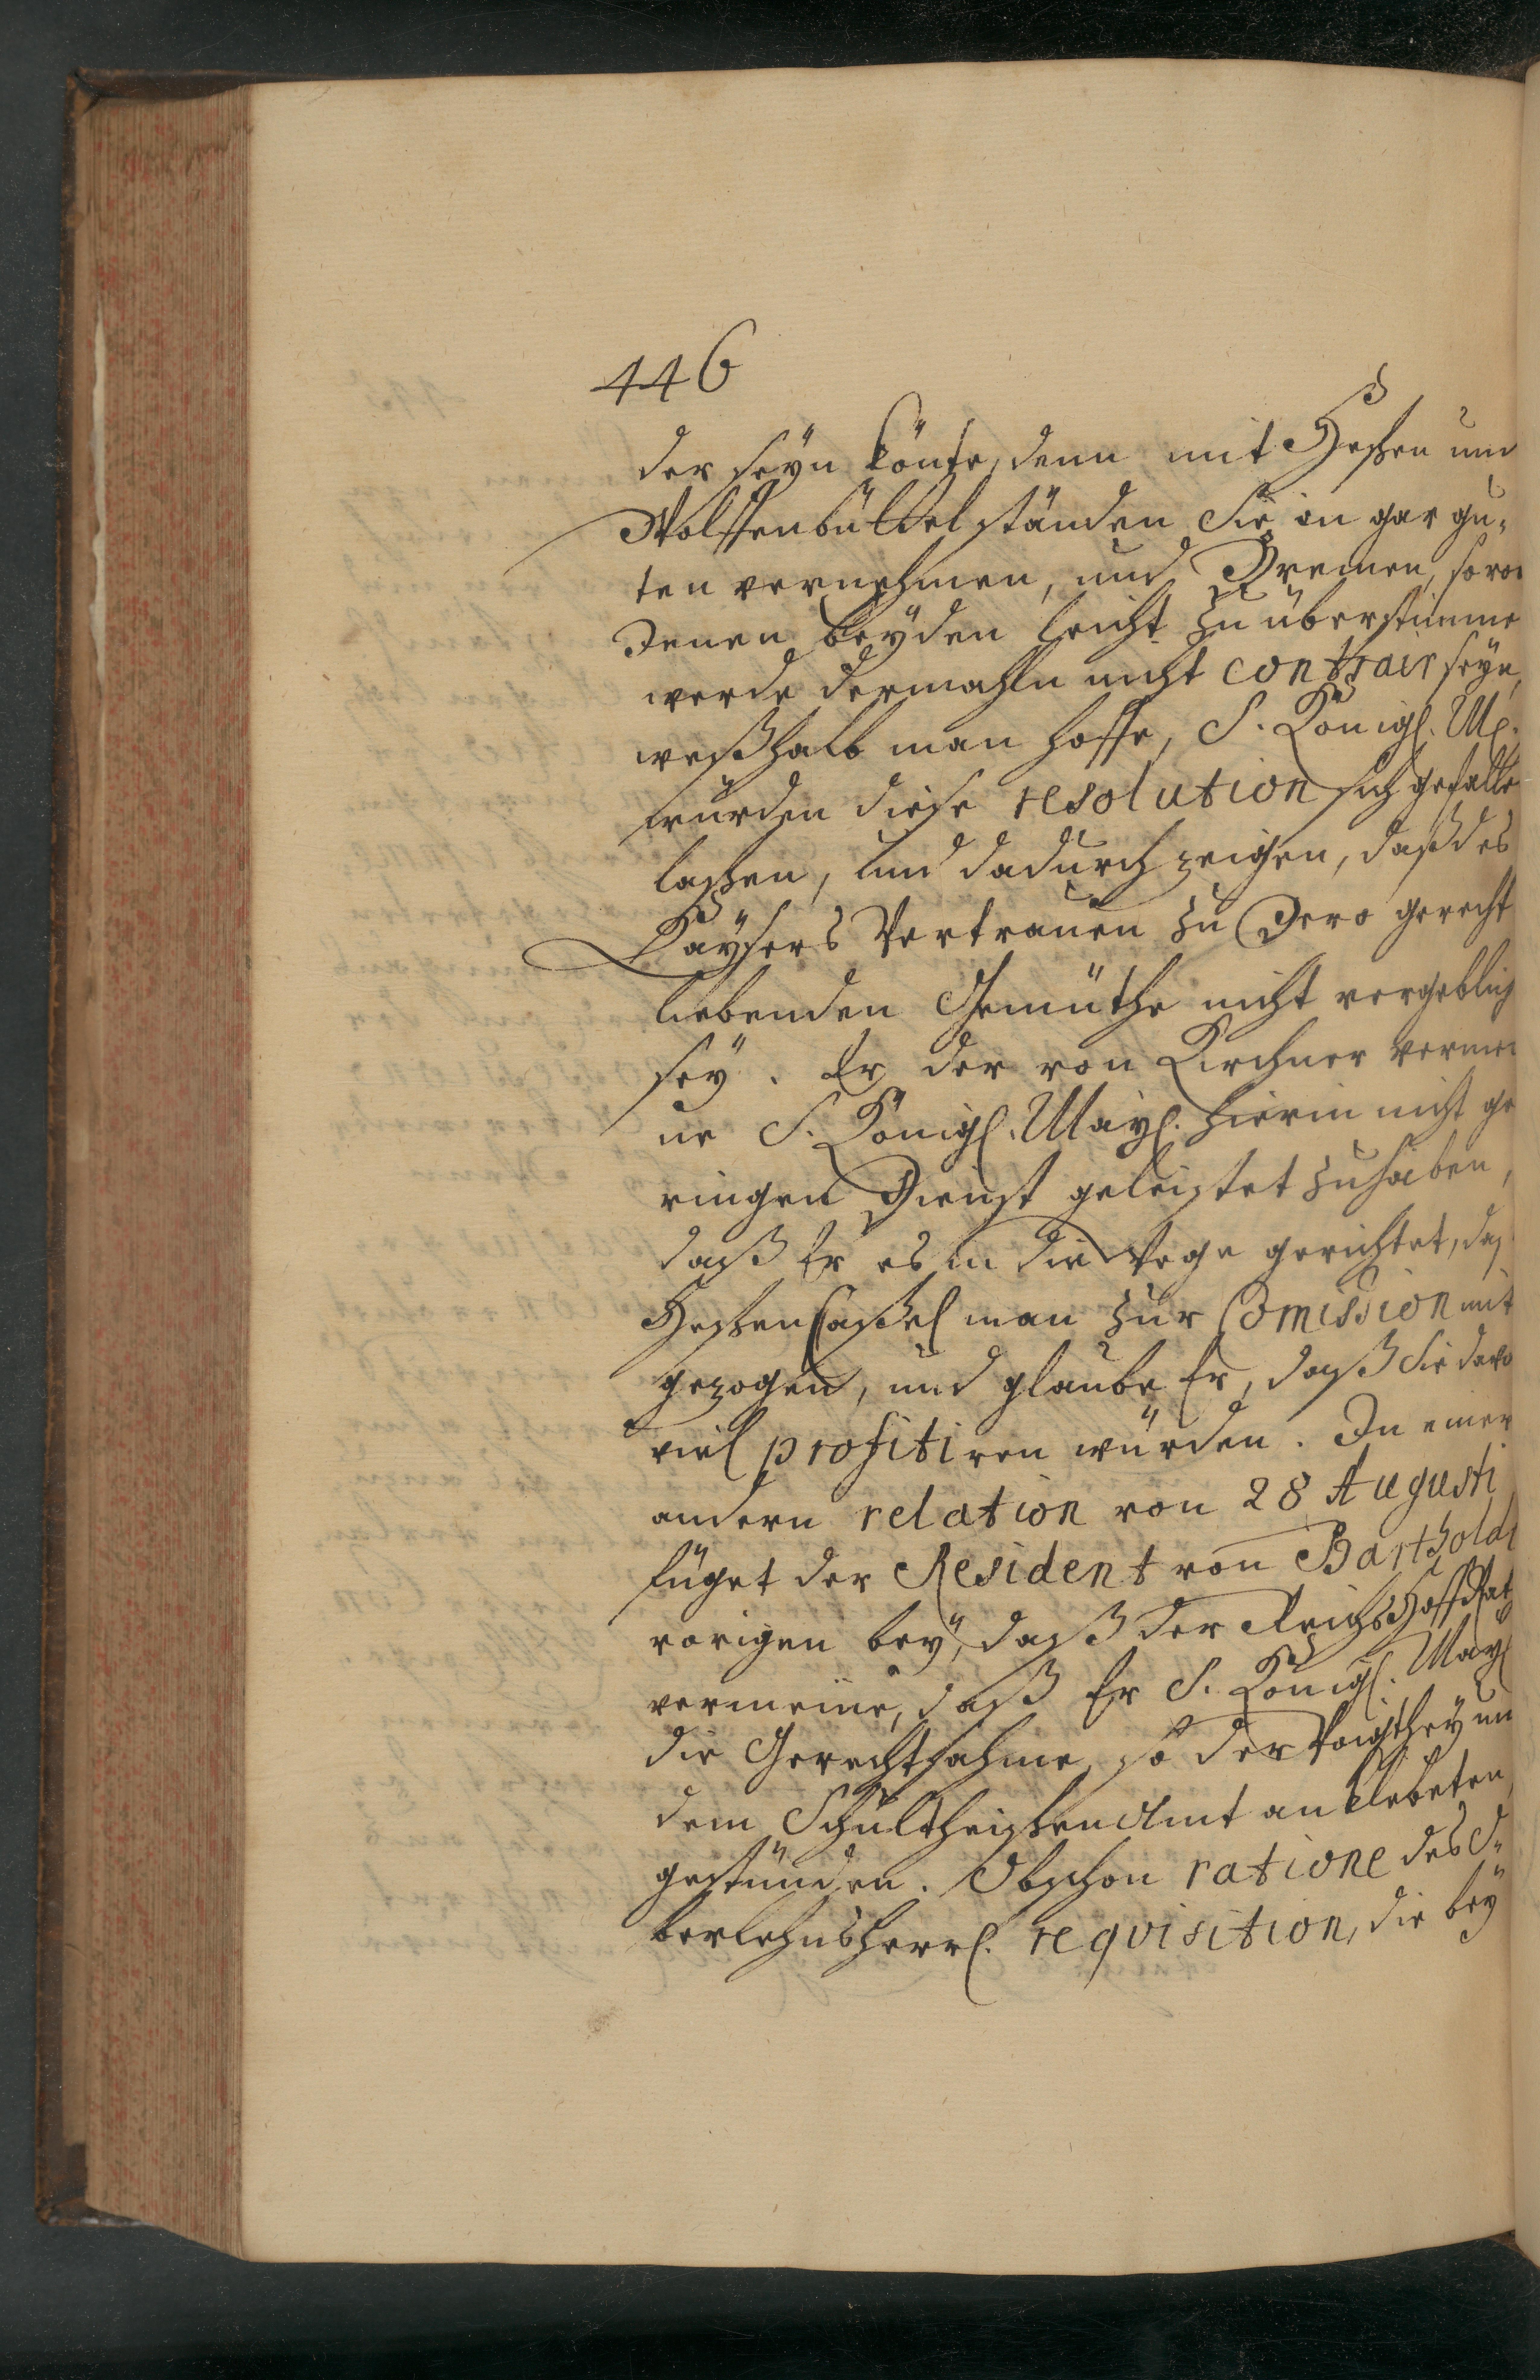 446
der seyn könte, denn mit Heßen und
Wolffenbüttel ständen Sie in gar gu-
ten vernehmen, und Bremen, so von
denen beyden leicht zu überstimme
werde dermahln nicht contrair seyn,
weßhalb man hoffe, S. Königl. M.
würden diese resolution sich gefalle
laßen, und dadurch zeigen, daß des
Kaysers Vertrauen zu Dero gerecht
liebenden Gemüthe nicht vergeblich
sey. Er der von Kirchner vermei
ne S. Königl. May. hierin nicht ge
ringen Dienst geleistet zu haben,
daß Er es in die Wege gerichtet, daß
HessenCaßel man zur Comission mit
gezogen, und glaube Er, daß Sie davo
viel profitiren würden. In einer
andern relation von 28 Augusti
füget der Resident von Bartholdi
vorigen bey, daß der ReichsHoffRat
vermeine, daß Er S. Königl. May
die Gerechtsahme, so der Voigthey un
dem SchultheißenAmt anklebeten,
gestünden. Obschon ratione des O-
berlehnsherrl. requisition, die bey